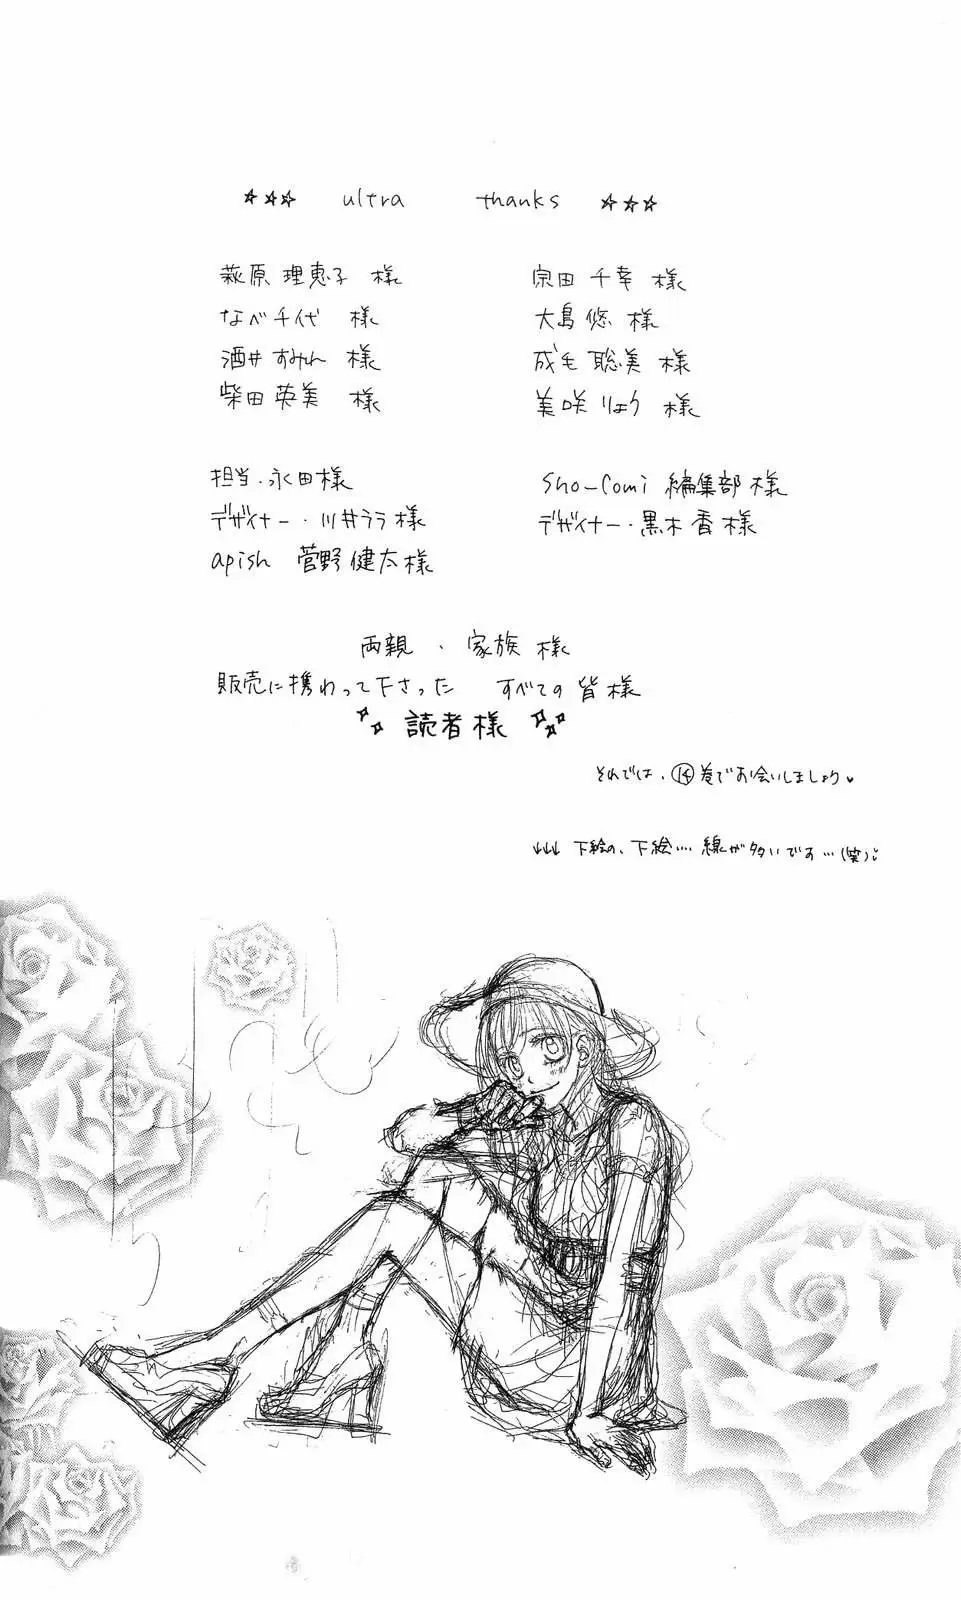 ☆☆☆ ultra thanks ☆☆☆
萩原 理恵子 様
宗田 千幸 様
なべ千代 様
大島 悠 様
酒井 すみれ 様
成毛 聡美 様
柴田 英美 様
美咲 りょう 様
担当・永田様
Sho-Comi 編集部 様
デザイナー・川井ララ様
デザイナー・黒木 香 様
apish 菅野 健太 様
両親、家族 様
販売に携わって下さった すべての 皆 様
読者様
それでは、⑭巻でお会いしましょう♥
↓↓↓ 下絵の、下絵…. 線が多いです…(笑)